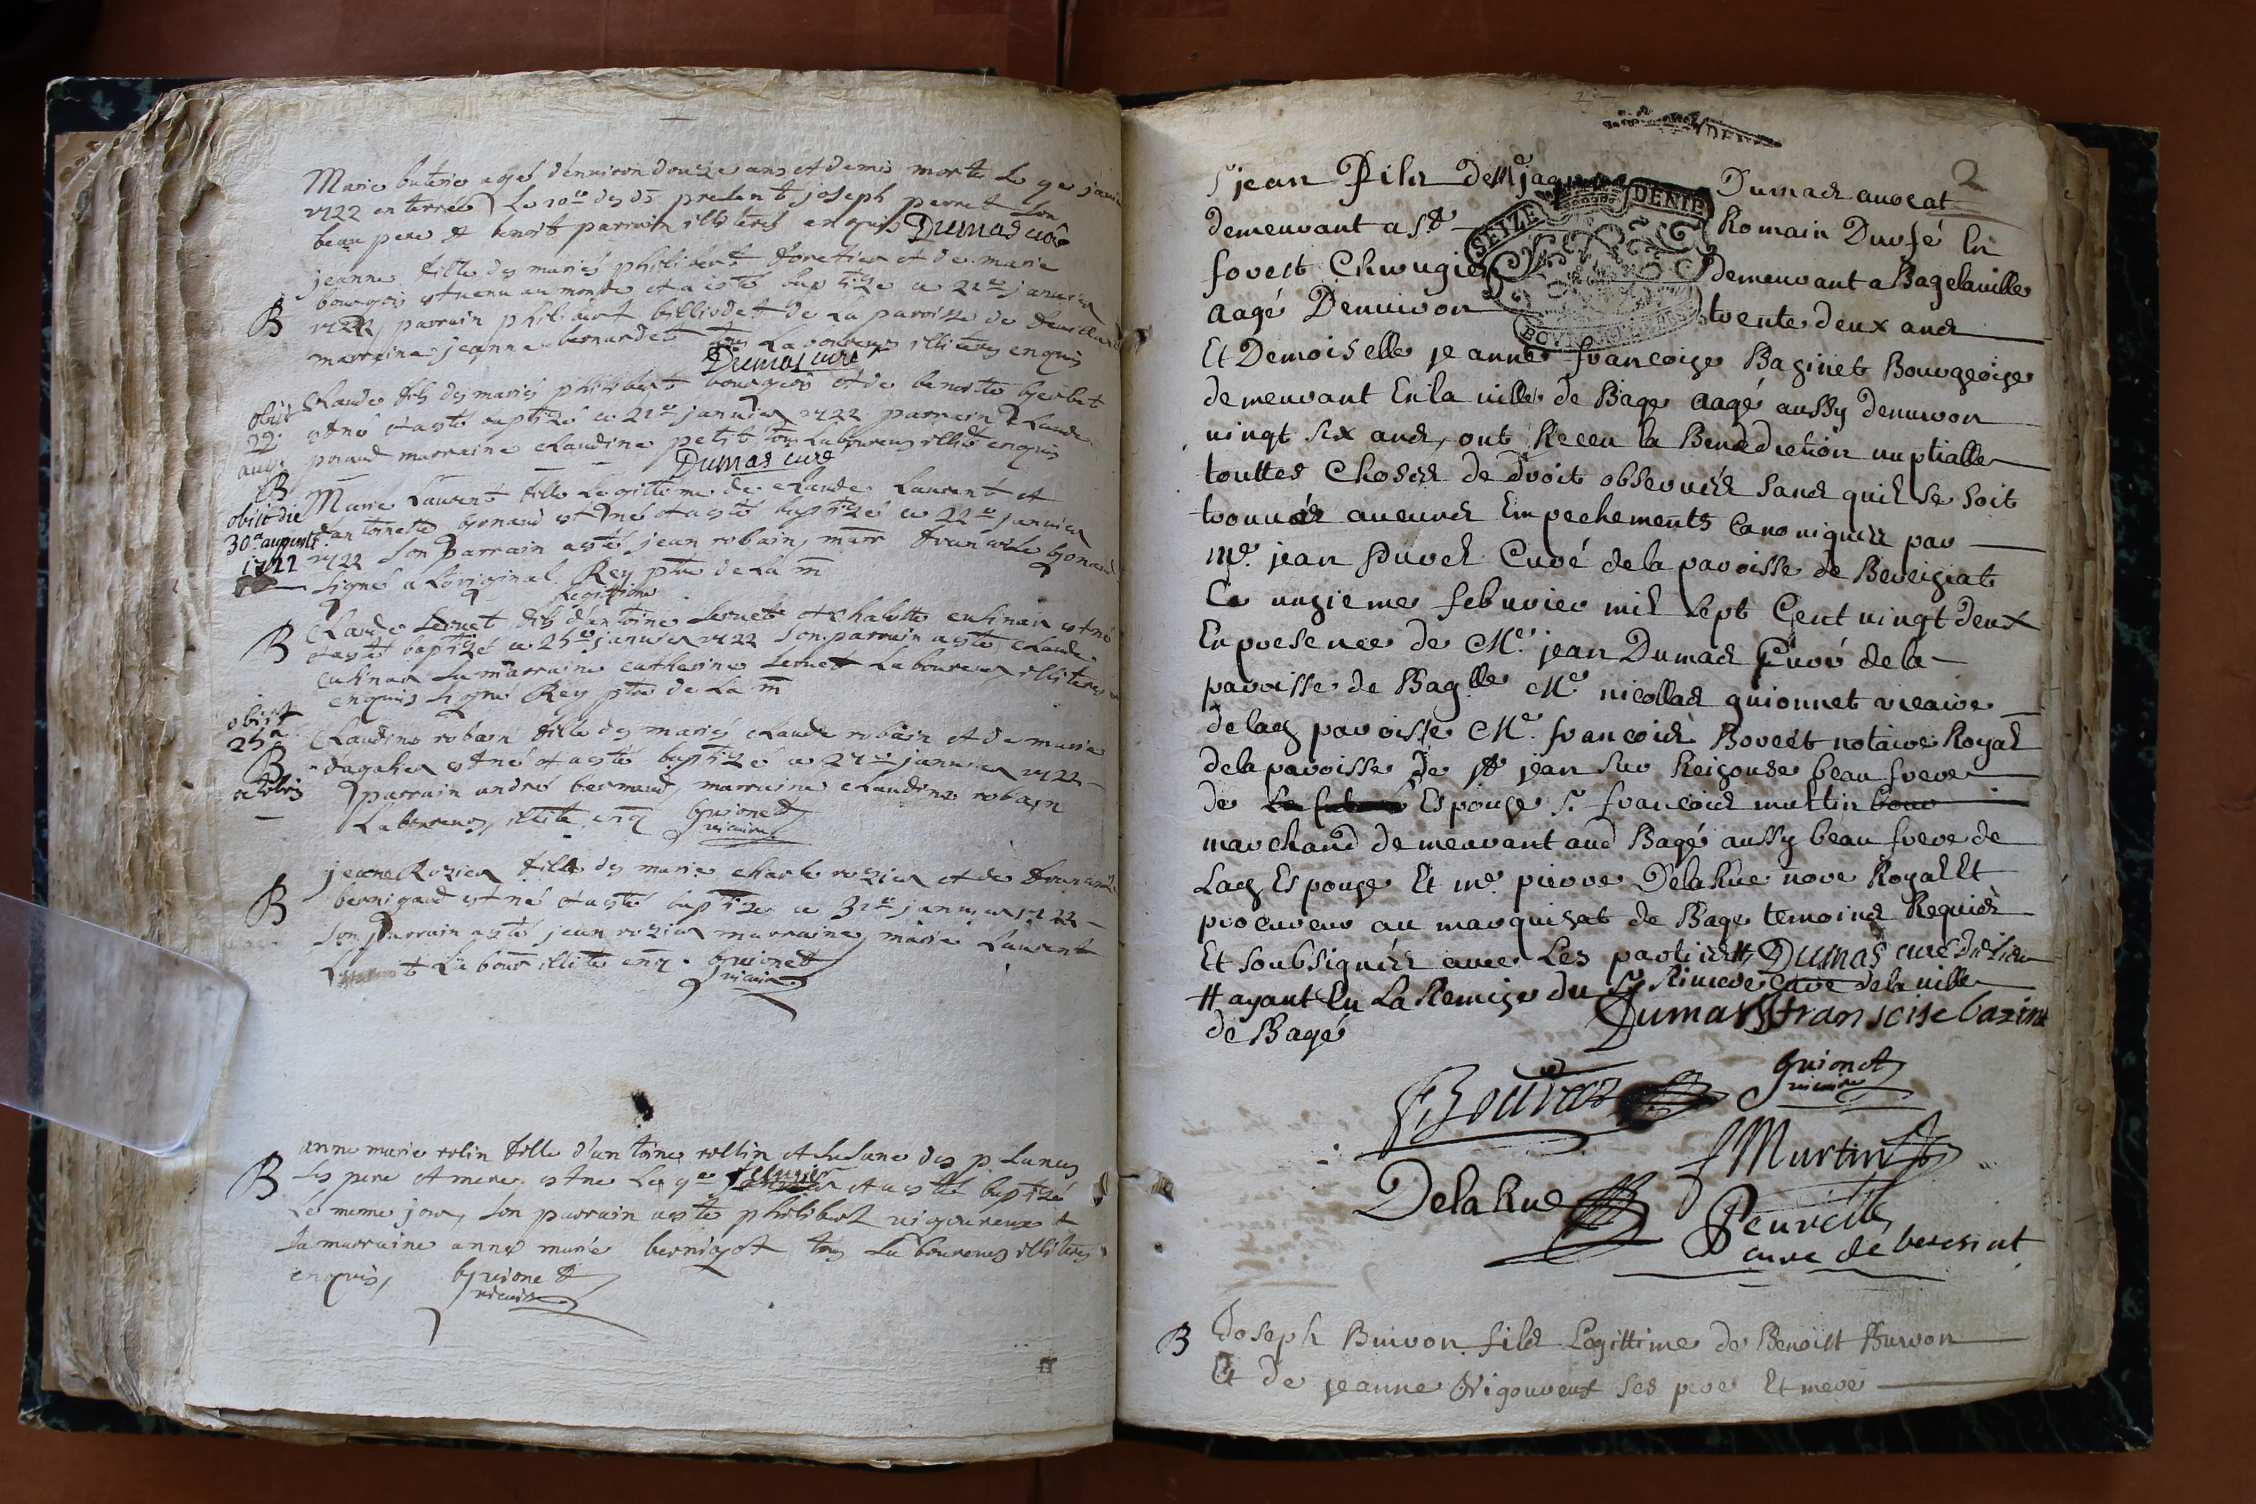 Marie buterie agé d'environ douze ans et demie morte Le 9e janvier
1722 enterrée Le 10e dud. present joseph perret son
beau pere et benoit parrain illiterés enquis Dumas curé
jeanne fille des mariés philibert et de marie
bourgeois est venu au monde et a esté baptizé ce 21e janvier
B
1722, parrain philibert billiodet de La paroisse de
marraine jeanne bernardet tous Laboureurs illiterés enquis
Dumas curé
Claude fils des mariés philibert bourgeois et de benoite gerbet
obiit
22
aug.
est né et a esté baptizé ce 21e janvier 1722 parrain Claude
peraud marraine Claudine petit tous Laboureurs illité enquis
Dumas curé
B
Marie Laurent fille Legittime de Claude Laurent et
obiit die
30a augusti
1722
d'antoinette gonand est né et a esté baptizé ce 22e janvier
1722 Son parrain a esté jean robain, marr francoise gonand
Signé a L'original. Rey ptre de La m
Legittime
B
Claude Sernet fils d'antoine Sernet et charlotte culinan est né
et a esté baptizé ce 25e janvier 1722 Son parrain a esté Claude
culinan La marraine catherine Sernet Laboureur illiterés
enquis Signé Rey ptre de La m
obiit
25a
B
octobris
Claudine robain fille des mariés Claude robain et de marie
dagalier est né et a esté baptizé ce 27e janvier 1722
parrain andré bernard marraine Claudine robain
Laboureurs, illité enq guionet
vicaire
B
jeanne Rozier fille des mariés Charle rozier et de francoise
bernigaud est né et a esté baptizé ce 31e janvier 1722
Son parrain a esté jean rozier marraine, marie Laurent
Labour illité enq. guionet
vicaire
B
anne marie rolin fille d'antoine rollin et
Les pere et mere est né Le 9e febvrier et a esté baptizé
Le meme jour, Son parrain a esté philibert vigoureux et
La marraine anne marie bernigot tous Laboureurs illiterés
enquis, guionet
vicaire
2
Sr jean Fils de Me jacques Dumas avocat
demeurant a St Romain Duvsé En
forest Chirugien demeurant a Bagelaville
aagé Denuiron trente deux ans
Et Demoiselle jeanne francoise Baginet Bourgeoise
demeurant En la ville de Bage aagé aussy denuiron
vingt six ans, ont Receu la Benediction nuptialle
touttes Choses de droit observées sans quil se soit
trouvés aucuns Empechements Canoniques par
Me. jean Curé de la paroisse de Bereiziat
Ce unzieme febvrier mil sept Cent vingt deux
En presence de Me. jean Dumas Curé de la
paroisse de Baglle Me. nicollas guionnet vicaire
de lad. paroisse Me. francois Boveet notaire Royal
de la paroisse de St jean sur Reizouse beau frere
de Espouse Sr francois multin
marchand demeurant aud Bagé aussy beau frere de
Lad. Espouse Et me. pierre Delarue nore Royal Et
procureur au marquisat de Bage temoins Requis
Et soubsignés avec Les parties # Dumas curé dud Lieu
# ayant Eu La Remise du Sr Curé de la ville
de Bagé
Dumas francoise bazinet
guionet
vicaire
Martin
Delarue
curé de beresiat
SEIZE DENIE
B
Joseph Buivon fils Legittime de Benoist Buivon
Et de jeanne Vigouveux ses pere Et mere